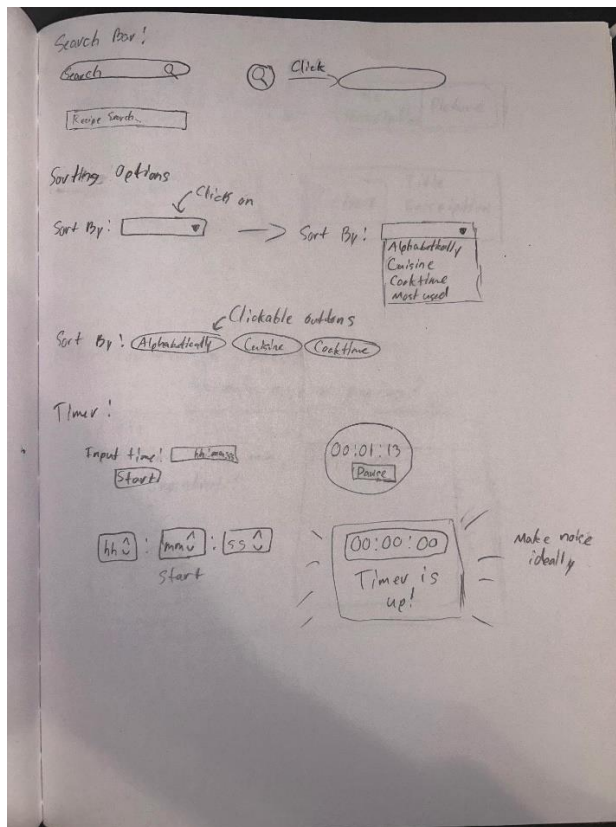 Search Bar:
Search
Click
Recipe Search...
Sorting Options
Click on
Sort By:
Sort By:
Alphabetically
Cuisine
Cooktime
Most used
Clickable buttons
Sort By: Alphabetically Cuisine Cooktime
Timer:
Input time: hh:mm:ss
Start
00:01:13
Pause
hh : mm : ss
Start
00:00:00
Timer is
up!
Make noise
ideally